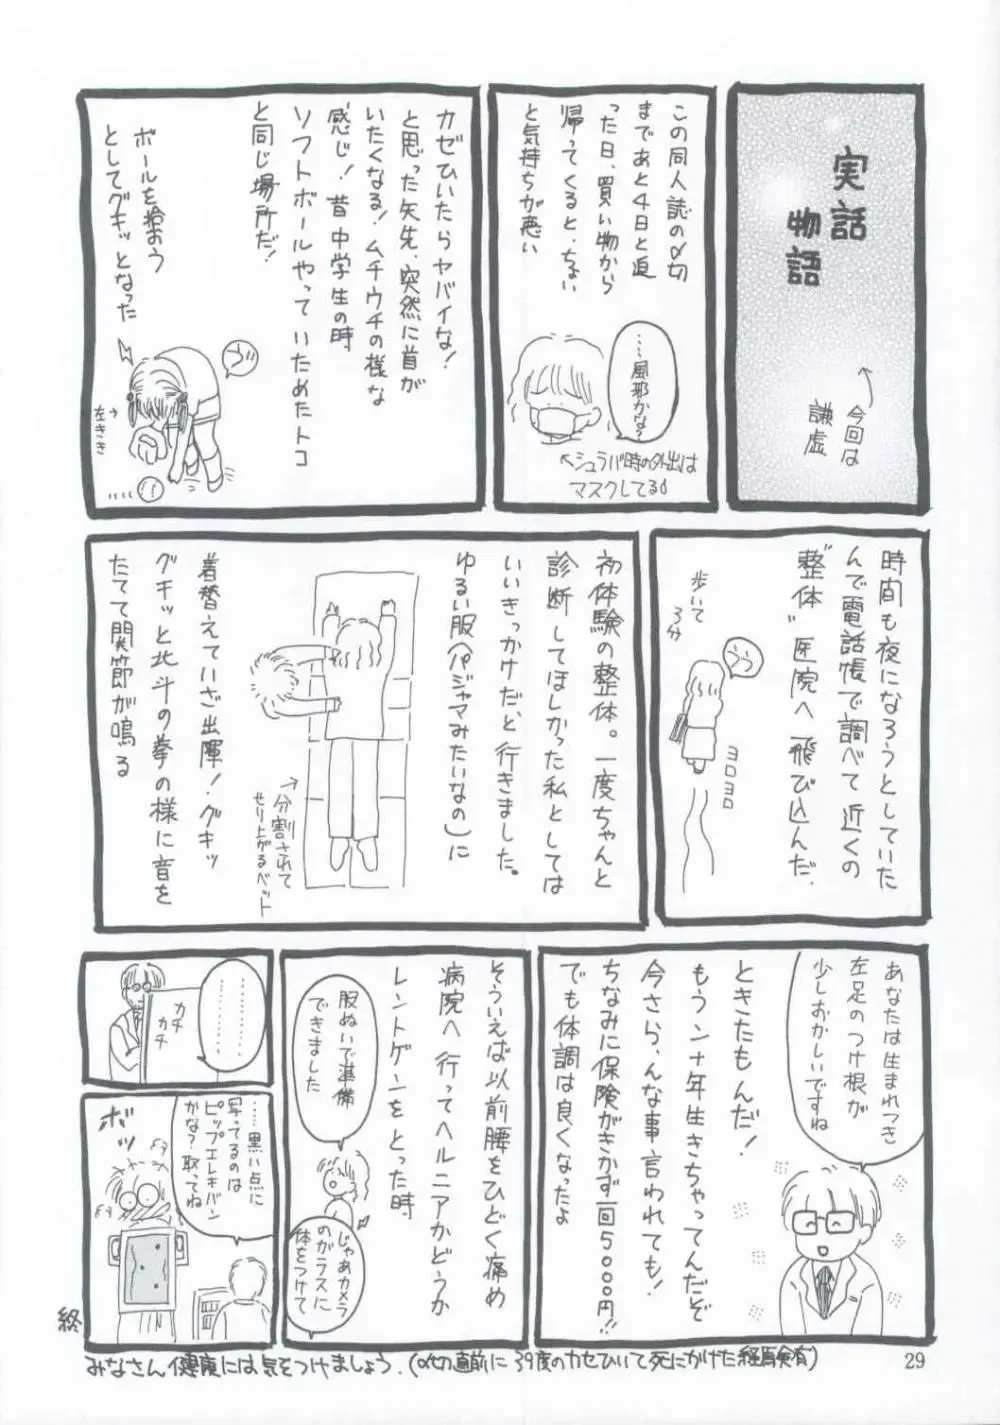 実話
物語
←今回は
謙虚
この同人誌の〆切
まであと4日と迫
った日、買い物から
帰ってくると、ちょい
と気持ちが悪い
……風邪かな?
←シュラバ時の外出は
マスクしてるよ
カゼひいたらヤバイな!
と思った矢先、突然に首が
いたくなる!ムチウチの様な
感じ!昔中学生の時
ソフトボールやっていためたトコ
と同じ場所だ!
ボールを拾おう
としてグキッとなった
ゔ
左きき→
時間も夜になろうとしていた
んで電話帳で調べて近くの
"整体"医院へ飛び込んだ.
歩いて
3分
うう
ヨロヨロ
初体験の整体。一度ちゃんと
診断してほしかった私としては
いいきっかけだと、行きました。
ゆるい服(パジャマみたいなの)に
着替えていざ出陣!グキッ
グキッと北斗の拳の様に音を
たてて関節が鳴る
→分割されて
せり上がるベット
あなたは生まれつき
左足のつけ根が
少しおかしいですね
ときたもんだ!
もうン十年生きちゃってんだぞ
今さら、んな事言われても!
ちなみに保険がきかず一回5000円!!
でも体調は良くなったよ
そういえば以前腰をひどく痛め
病院へ行ってヘルニアかどうか
レントゲンをとった時
服ぬいで準備
できました
じゃあカメラ
のガラスに
体をつけて
…………
カチ
カチ
……黒い点に
写ってるのは
ピップエレキバン
かな?取ってね
ボッ
終
みなさん健康には気をつけましょう.(〆切直前に39度のカゼひいて死にかけた経験有)
29